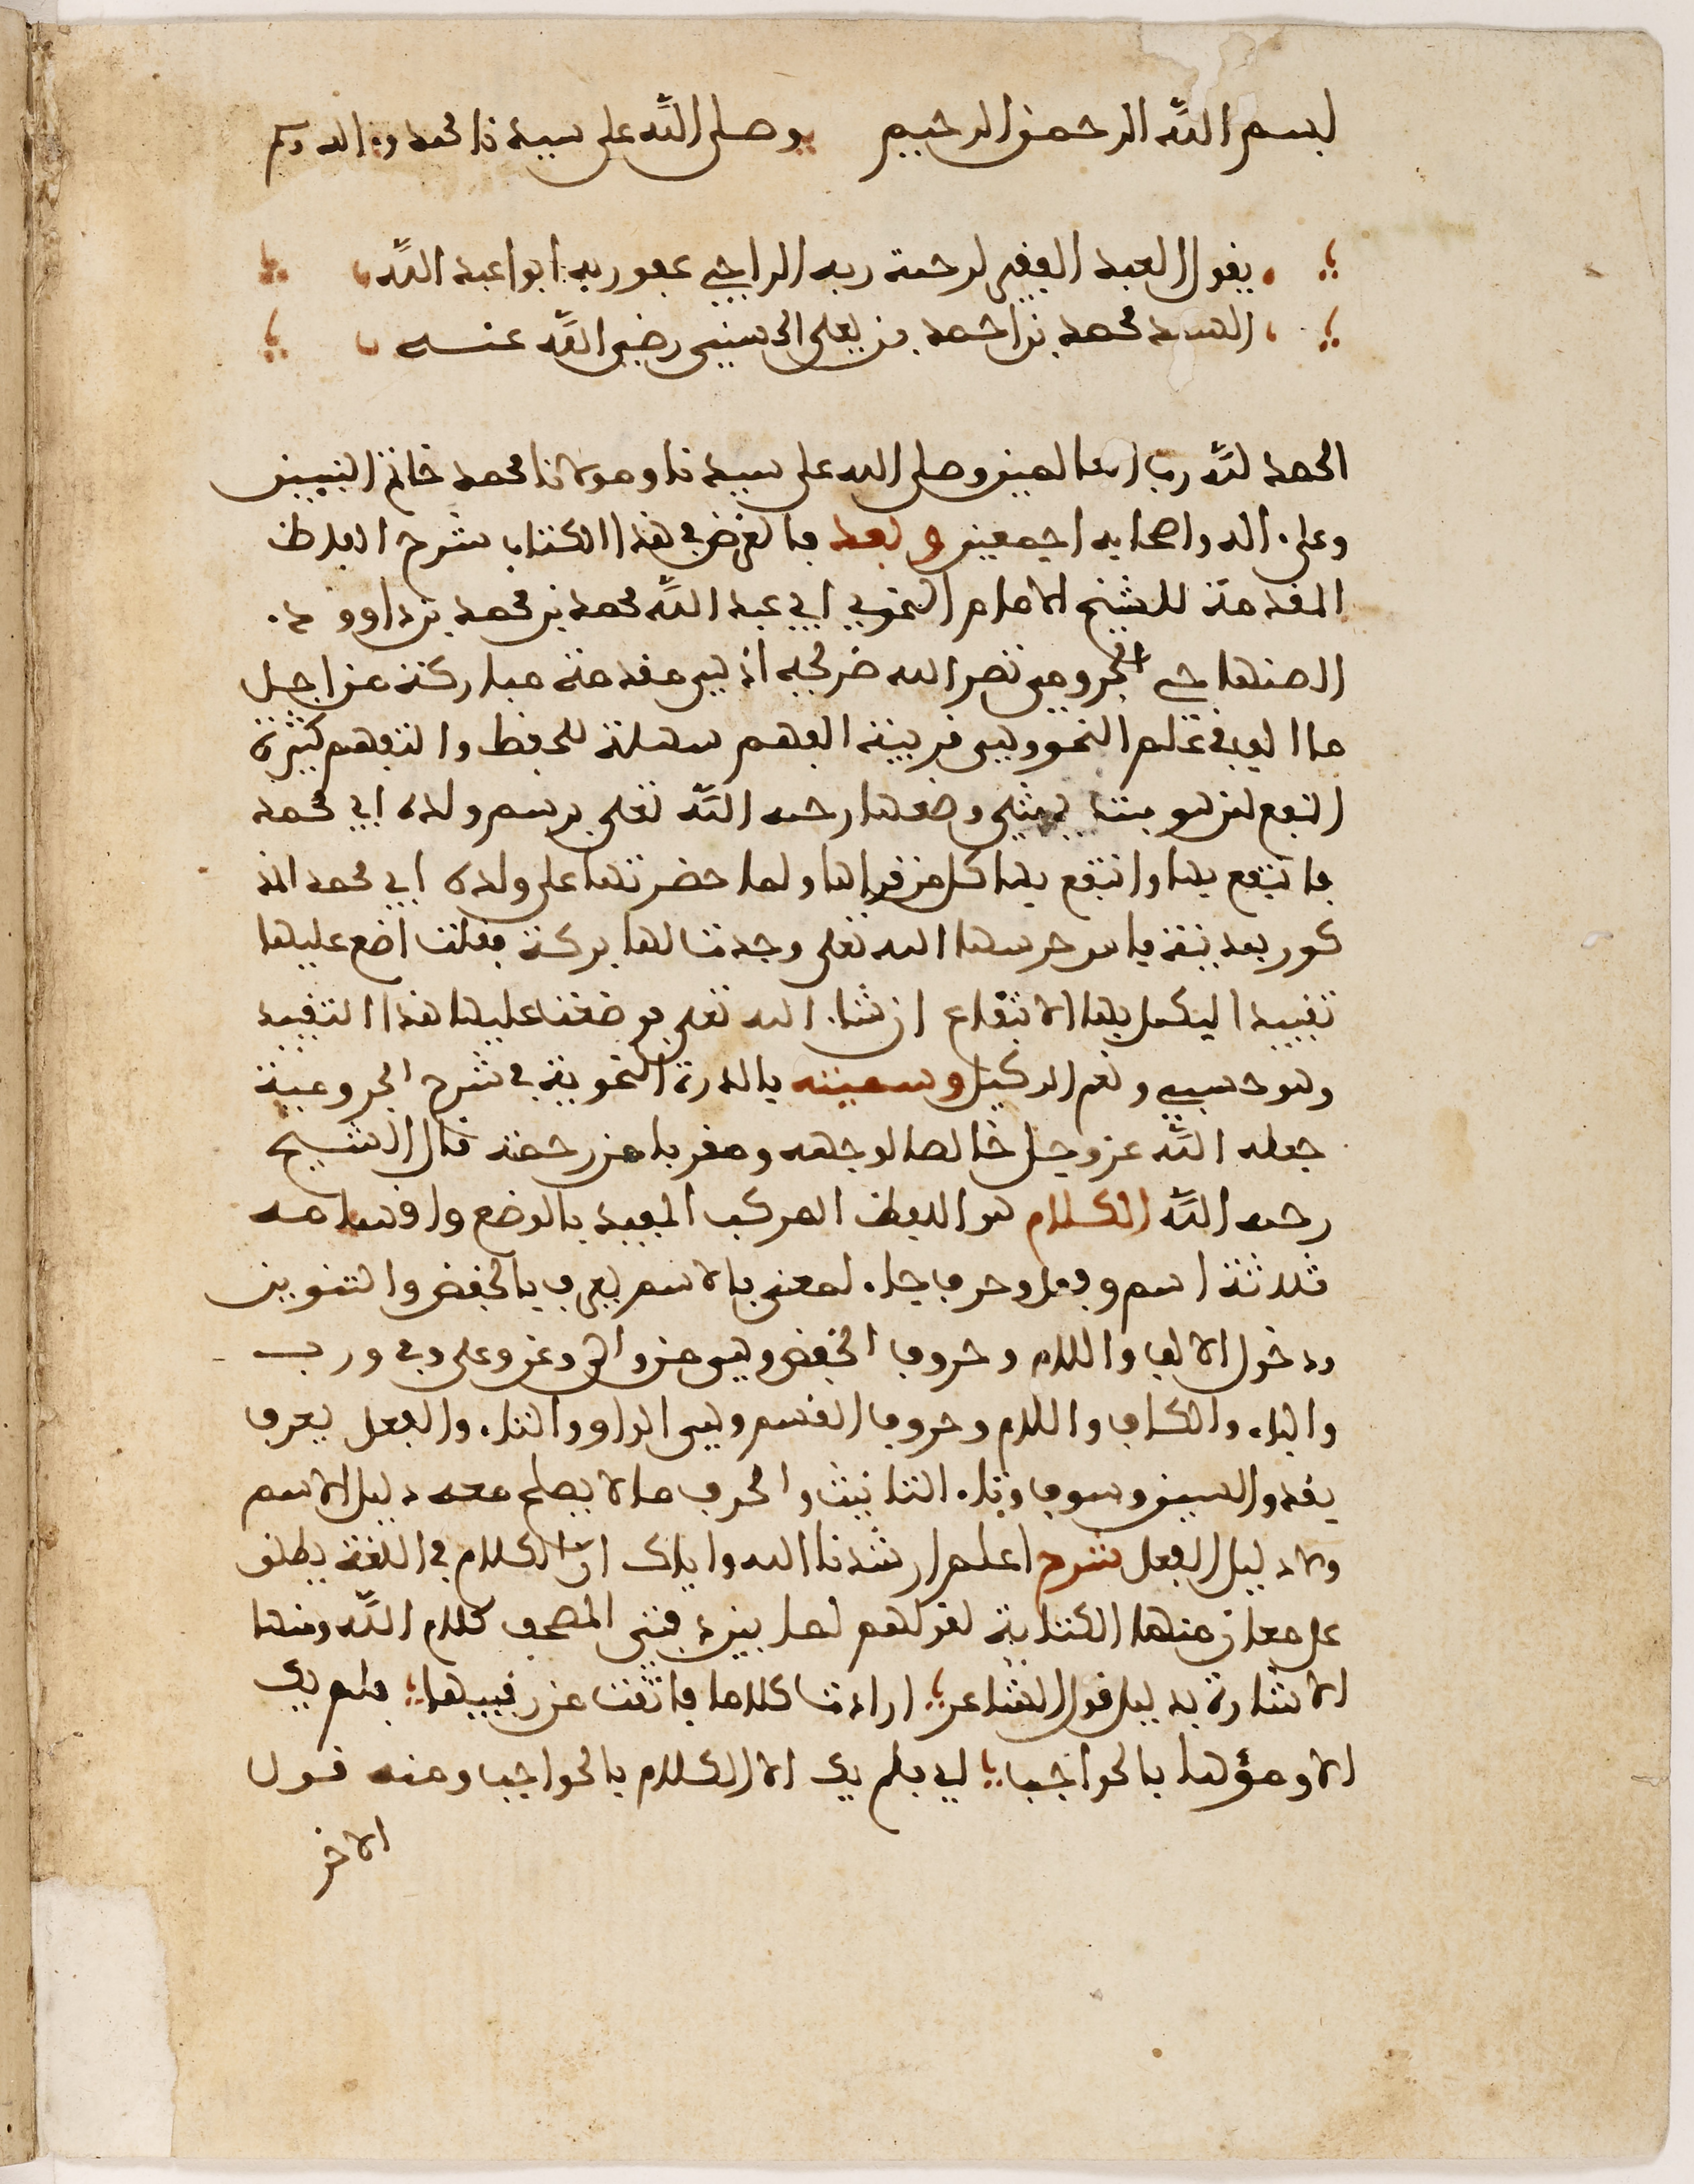 بسم الله الرحمن الرحيم وصلى الله على سيدنا محمد واله
يقول العبد الفقير لرحمة ربه الراجي عفو ربه ابو اعبد الله
محمد بن احمد بن يعلى الحسيني رضي الله عنه
الحمد لله رب العالمين وصلى الله على سيدنا ومولانا محمد خاتم النبيين
وعلى ءاله واصحابه اجمعين وبعد فالغرض في هذا الكتاب شرح الفاظ
المقدمة للشيخ الامام النحوي ابي عبد الله محمد بن محمد بن داوود
الصنهاجي الجرومي نصر الله ضريحه اذ هي مقدمة مباركة من اجل
ما الف في علم النحو وهي قريبة الفهم سهلة للحفظ والتفهم كثيرة
النفع لمن هو مبتدي مثلي وضعها رحمه الله تعلى برسم ولده ابي محمد
فانتفع بها وانتفع بها كل من قراها ولما حضرتها على ولده ابي محمد المذ
كور بمدينة فاس حرسها الله تعلى وجدت لها بركة فقلت اضع عليها
تقييدا ليكمل بها الانتفاع ان شاء الله تعلى فوضعت عليها هذا التقييد
وهو حسبي ونعم الوكيل وسميته بالدرة النحوية في شرح الجرومية
جعله الله عز وجل خالصا لوجهه ومقربا من رحمته قال الشيخ
رحمه الله الكلام هو اللفظ المركب المفيد بالوضع واقسامه
ثلاثة اسم وفعل وحرف جاء لمعنى فالاسم يعرف بالخفض والتنوين
ودخول الالف واللام وحروف الخفض وهي من والى وعن وعلى وفي ورب
والباء والكاف واللام وحروف القسم وهي الواو والتاء والفعل يعرف
بقد والسين وسوف وتاء التانيث والحرف ما لا يصلح معه دليل الاسم
ولا دليل الفعل شرح اعلم ارشدنا الله واياك ان الكلام في اللغة يطلق
على معان منها الكتابة لقولهم لما بين دفتي المصحف كلام الله ومنها
الاشارة بدليل قول الشاعر ارادت كلاما فاتقت من رقيبها فلم يك
الا ومؤها بالحواجب اي فلم يك الا الكلام بالحواجب ومنه قول
الاخر